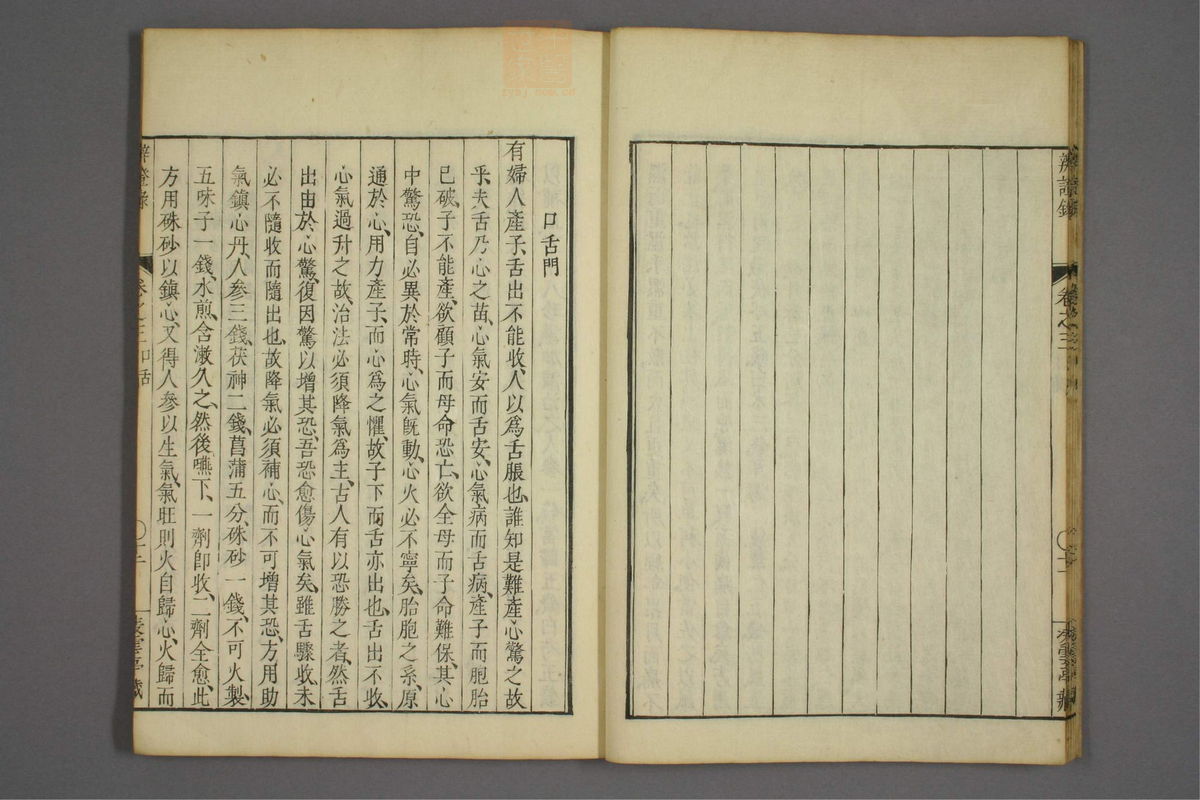 辨證錄
卷之三
口舌門
有婦人產子舌出不能收、人以爲舌脹也、誰知是難產心驚之故
乎、夫舌乃心之苗、心氣安而舌安、心氣病而舌病、產子而胞胎
已破、子不能產、欲顧子而母命恐亡、欲全母而子命難保、其心
中驚恐、自必異於常時、心氣旣動、心火必不寧矣、胎胞之系、原
通於心、用力產子、而心爲之懼、故子下而舌亦出也、舌出不收、
心氣過升之故、治法必須降氣爲主、古人有以恐勝之者、然舌
出由於心驚、復因驚以增其恐、吾恐愈傷心氣矣、雖舌驟收、未
必不隨收而隨出也、故降氣必須補心、而不可增其恐、方用助
氣鎮心丹、人參三錢、茯神二錢、菖蒲五分、硃砂一錢、不可火製、
五味子一錢、水煎、含漱久之、然後嚥下、一劑卽收、二劑全愈、此
方用硃砂以鎮心、又得人參以生氣、氣旺則火自歸心、火歸而
辨證錄
卷之三口舌